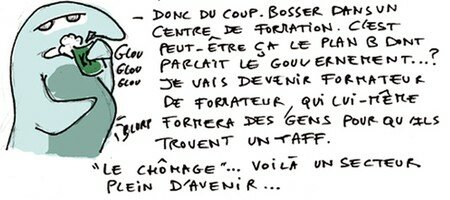 - DONC DU COUP. BOSSER DANS UN
CENTRE DE FORMATION. C'EST
PEUT-ÊTRE ÇA LE PLAN B DONT
PARLAIT LE GOUVERNEMENT...?
JE VAIS DEVENIR FORMATEUR
DE FORMATEUR, QUI LUI-MÊME
FORMERA DES GENS POUR QU'ILS
TROUVENT UN TAFF.
"LE CHÔMAGE"... VOILÀ UN SECTEUR
PLEIN D'AVENIR...
GLOU
GLOU
GLOU
BLORF